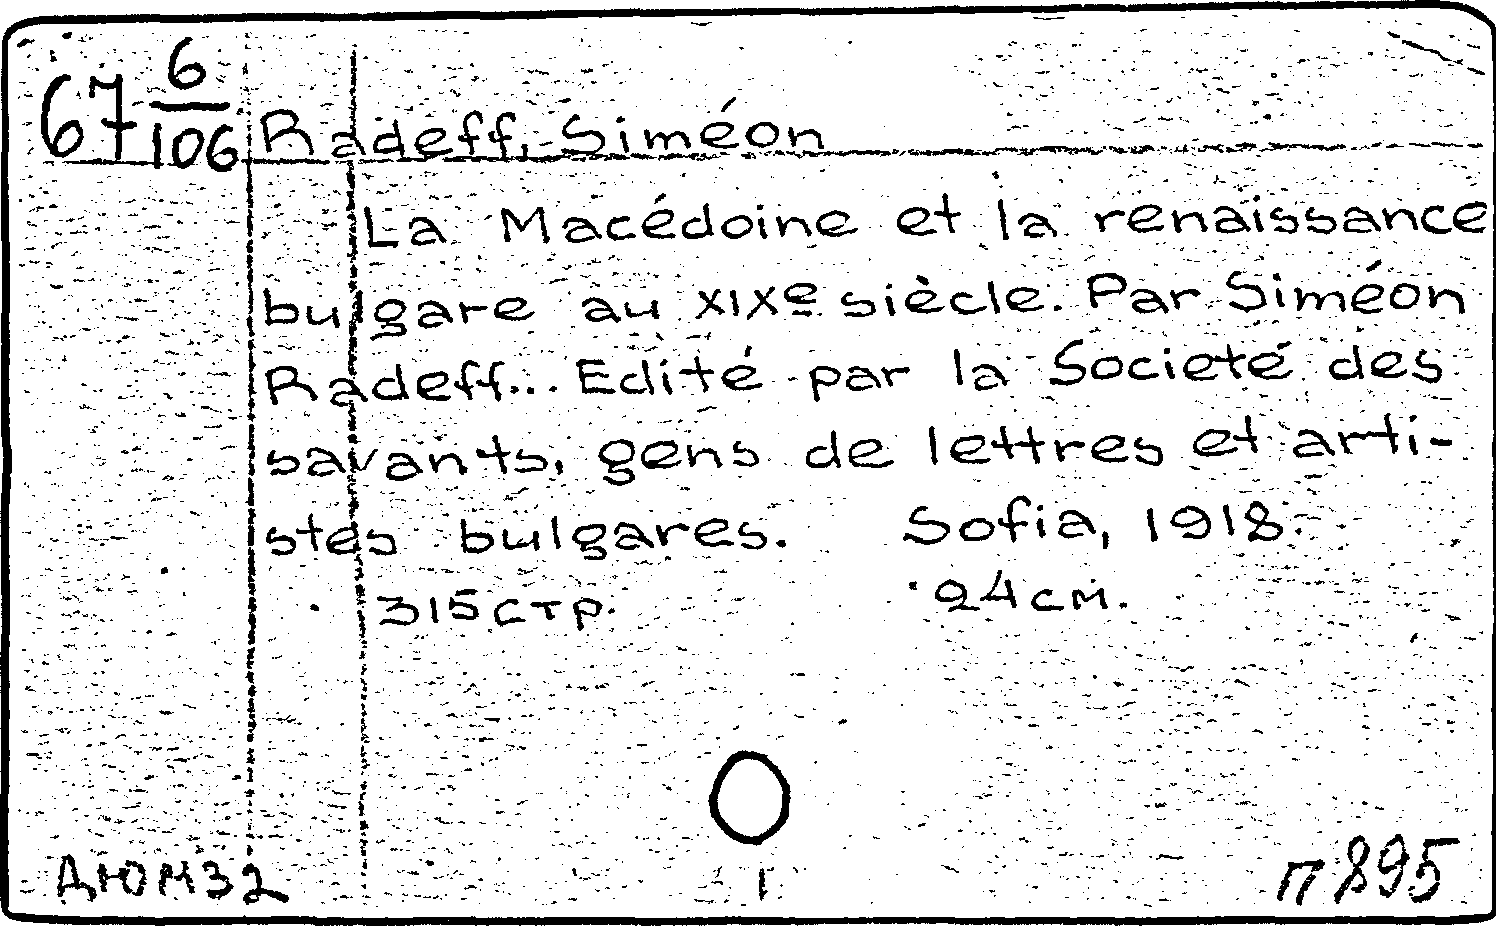 67 6/106 Radeff, Siméon
La Macédoine et la renaissance
bulgare au XIXe siècle. Par Siméon
Radeff... Edité par la Societé des
savants, gens de lettres et arti-
stes bulgares. Sofia, 1918.
315 стр. 24 см.
ДЮМ32 1 п 895